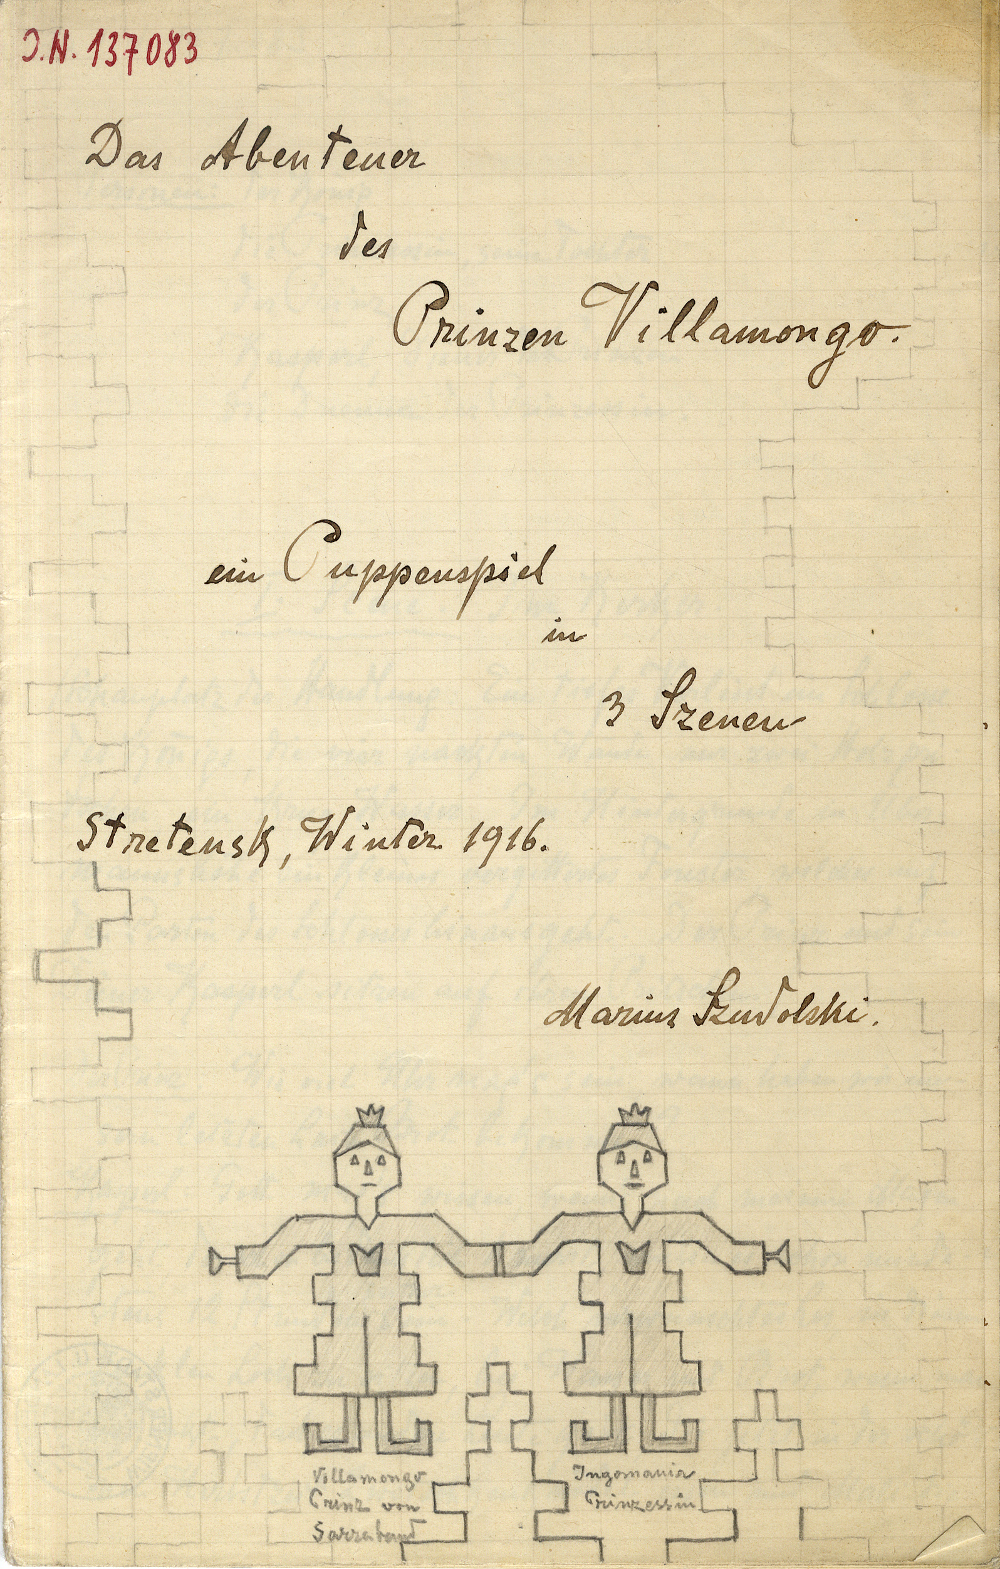 J.N. 137083
Das Abenteuer
des
Prinzen Villamongo.
ein Puppenspiel
in
3 Szenen
Stretensk, Winter 1916.
Marius Szudolski.
Villamongo
Prinz von
Ingomania
Prinzessin